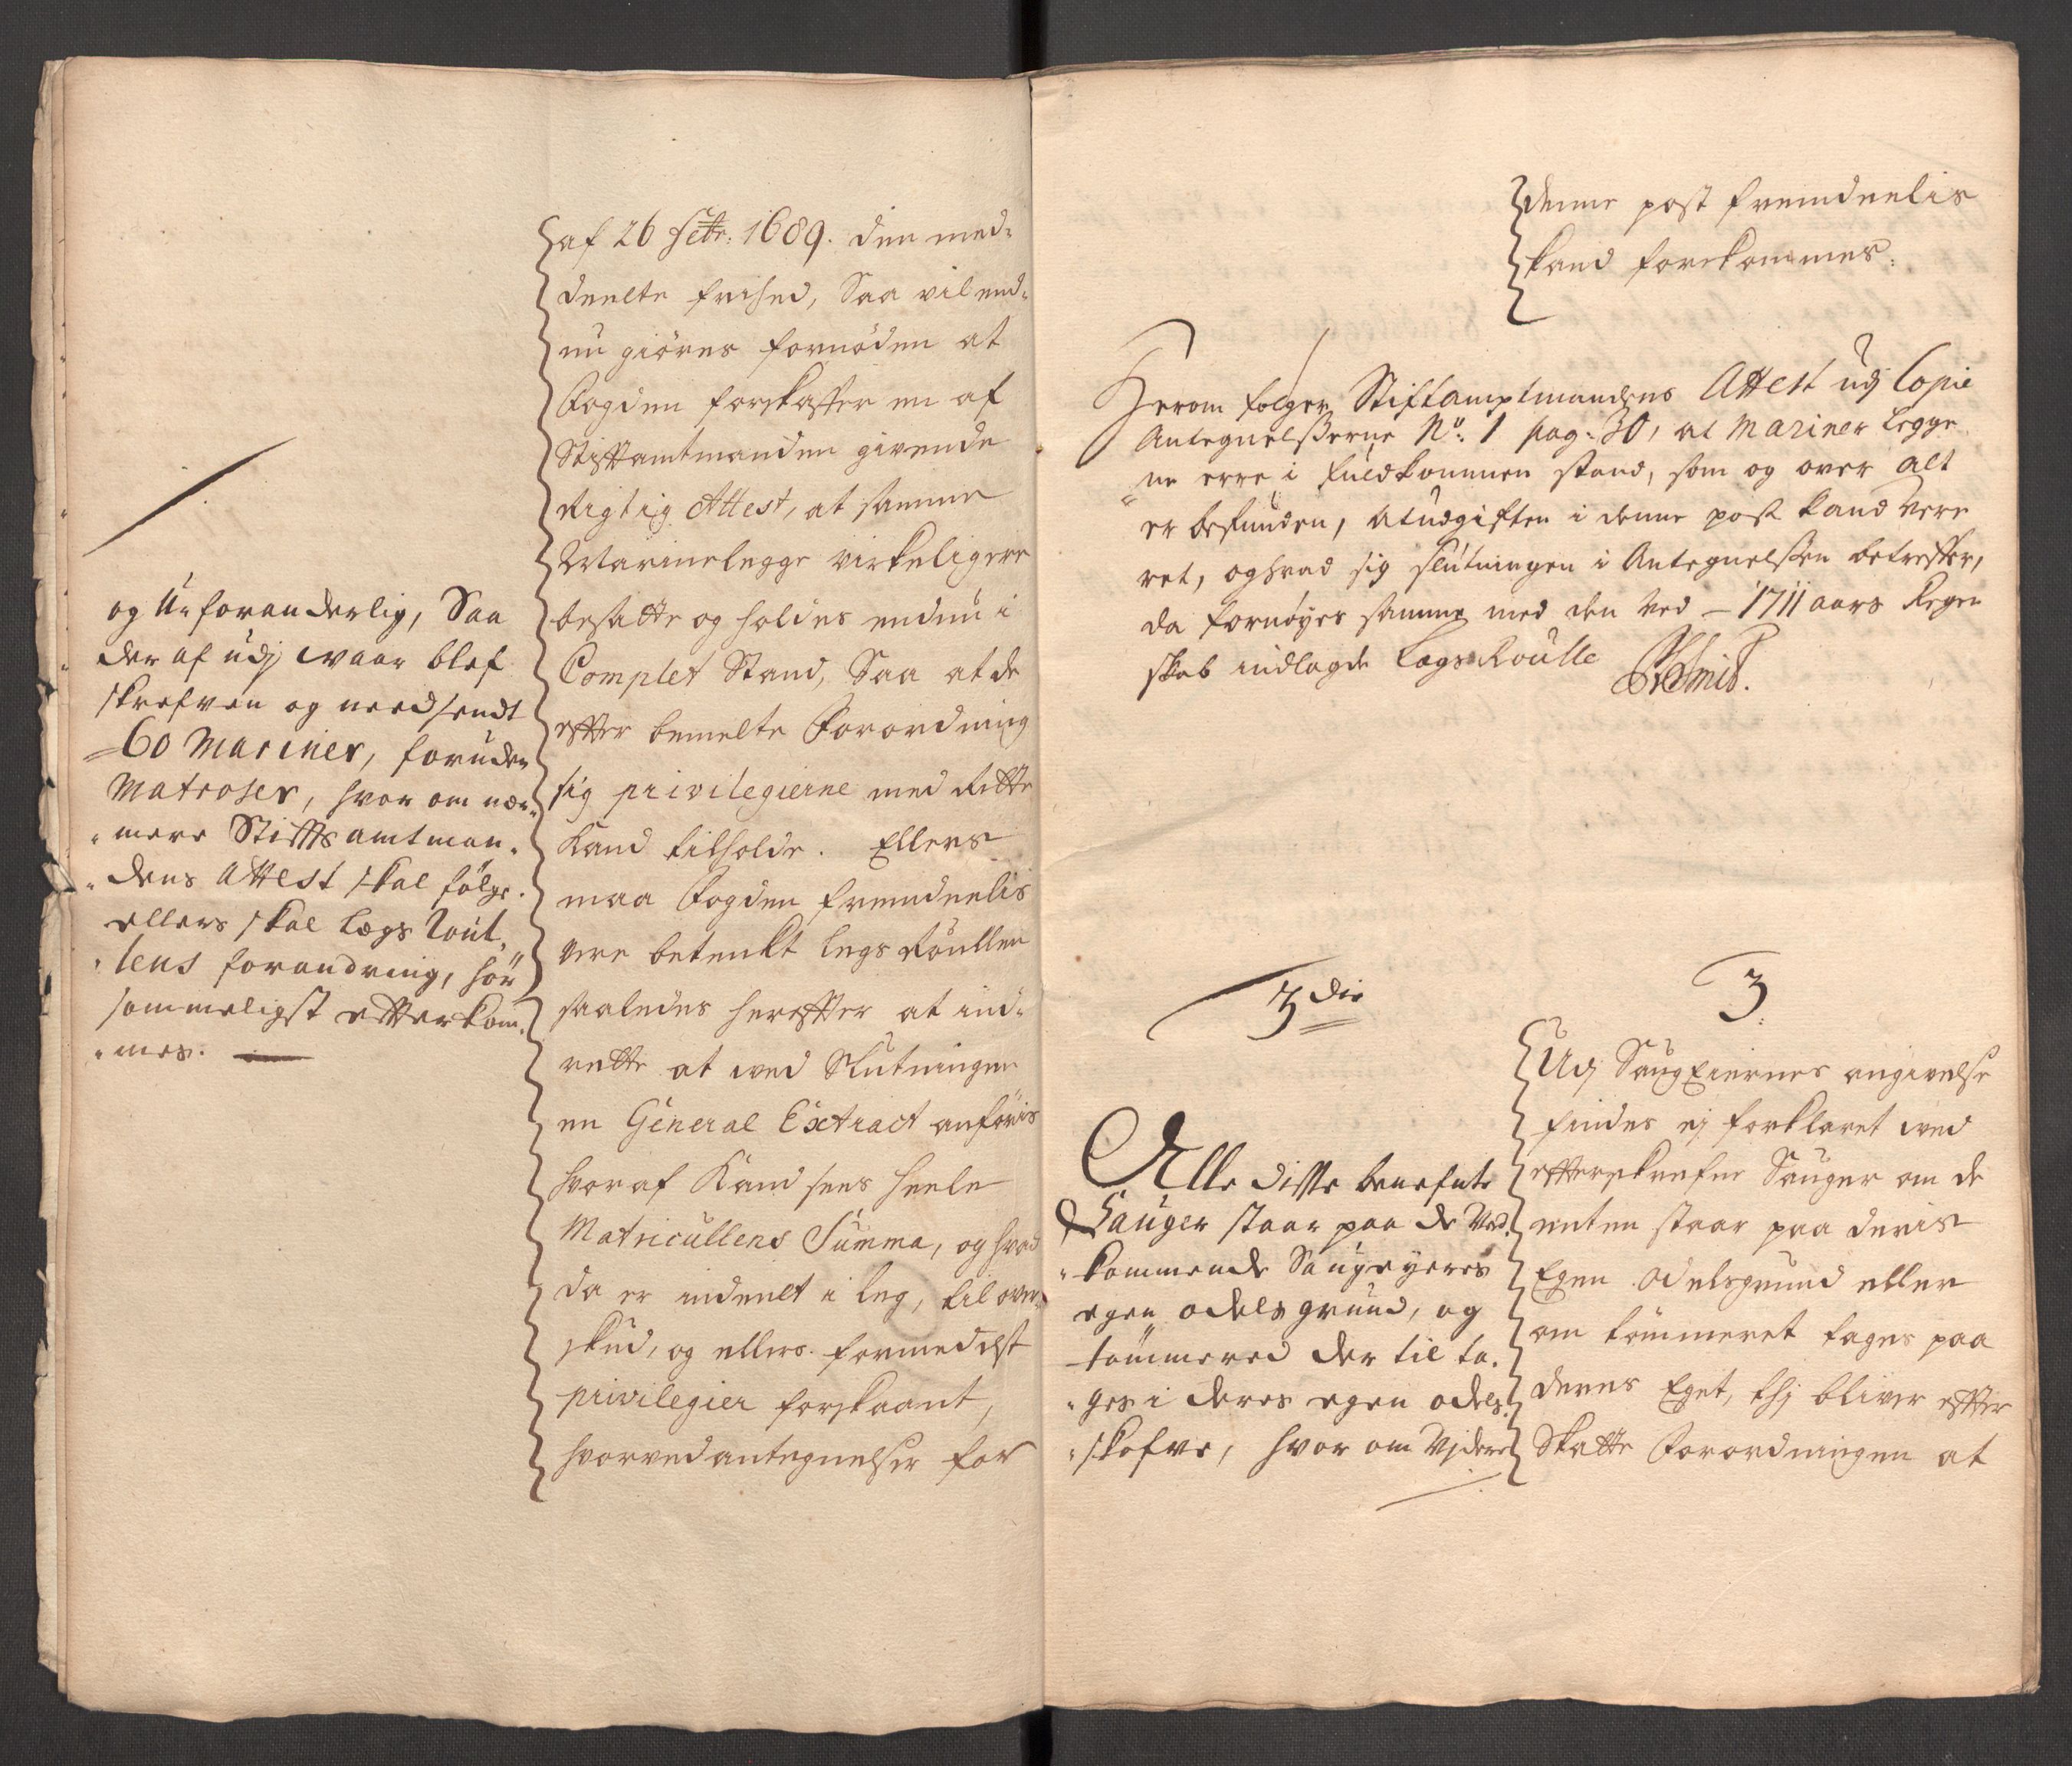 og u=foranderlig, Saa
der af udj waar blef
skrefven og needsendt
=60 Mariner, foruden
Matroser, hvor om nær=
mere Stiffts amtman=
dens Attest skal følge.
ellers skal Legs Roul=
lens forandring, hør
sommeligst etterkom=
mes.
af 26 Sebr: 1689. den med=
deelte frihed, Saa vil end=
nu giöres fornöden at
Fogden forskaffer en af
Stiftamtmanden givende
Rigtig Attest, at samme
Marinelegge virkeligere
besatte og holdes endnu i
Complet Stand, Saa at de
effter bemelte Forordning
sig privilegierne med Rette
Kand tilholde. Ellers
maa Fogden fremdeelis
vere betenkt legs Roullen
saaledes hereffter at ind=
rette at wed Slutningen
en General Extract anföris
hvoraf Kand sees heele
Matricullens Summa, og hvad
da er indeelt i leg, til over=
skud, og ellers formedelst
privilegier forskaant,
hvorved antegnelser for
denne post fremdeelis
kand forekommes.
Herom følger Stiftamptmandens Attest udj Copie
Antegnelsserne No: 1 pag: 30, at Mariner Legge
ne erre i fuldkommen stand, som og over alt
er befunden, at udgiften i denne post kand vere
ret, og hvad sig slutningen i Antegnelssen betreffer,
da fornøyes samme med den ved - 1711 aars Regen
skab indlagde Lægs Roulle
3die
Alle disse benefnte
Sauger staar paa de Ved=
kommende Saugeyeres
egen odels grund, og
tömmered der til ta=
ges i deres egen odels
skofve, hvor om Vjdere
3
Udj Saug Eiernes angivelse
findes ej forklaret wed
effterskrefne Sauger om de
enten staar paa deris
Egen Odelsgrund eller
om tömmeret tages paa
deres Eget, thj bliver effter
Skatte Forordningen at